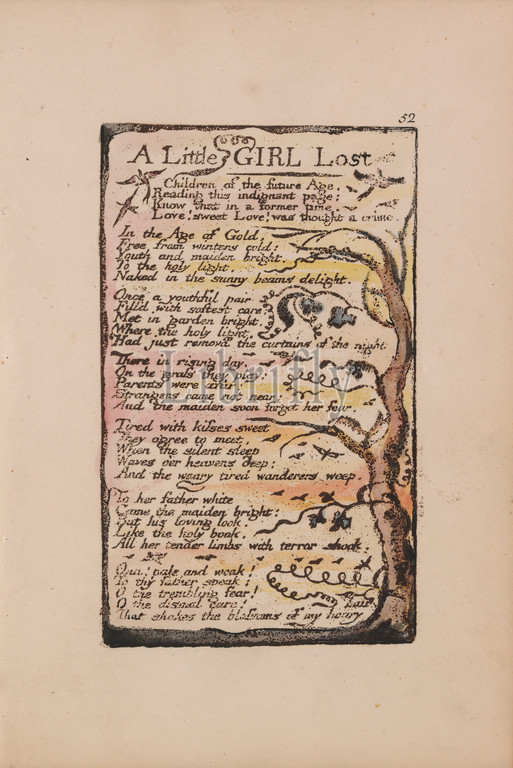 52
A Little GIRL Lost
Children of the future Age,
Reading this indignant page:
Know that in a former time,
Love! sweet Love! was thought a crime.
In the Age of Gold,
Free from winters cold:
Youth and maiden bright,
To the holy light,
Naked in the sunny beams delight.
Once a youthful pair
Fill'd with softest care:
Met in garden bright,
Where the holy light,
Had just removd the curtains of the night.
There in rising day,
On the grass they play:
Parents were afar:
Strangers came not near:
And the maiden soon forgot her fear.
Tired with kisses sweet
They agree to meet,
When the silent sleep
Waves o'er heavens deep:
And the weary tired wanderers weep.
To her father white
Came the maiden bright:
But his loving look,
Like the holy book,
All her tender limbs with terror shook:
Ona! pale and weak!
To thy father speak:
O the trembling fear!
O the dismal care!
hair
That shakes the blossoms of my hoary
Librifly